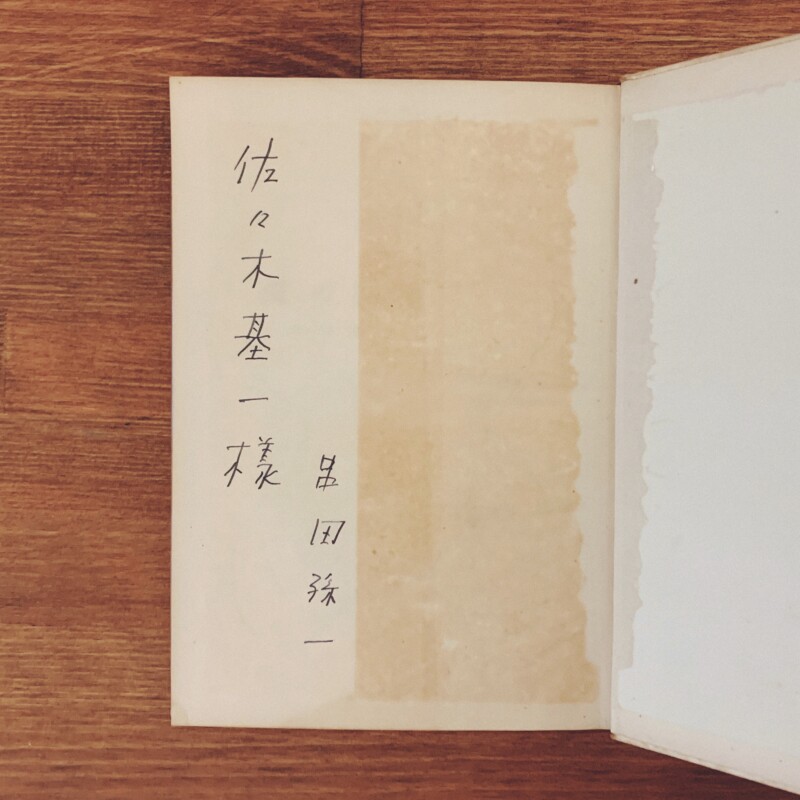 串田孫一
佐々木基一様